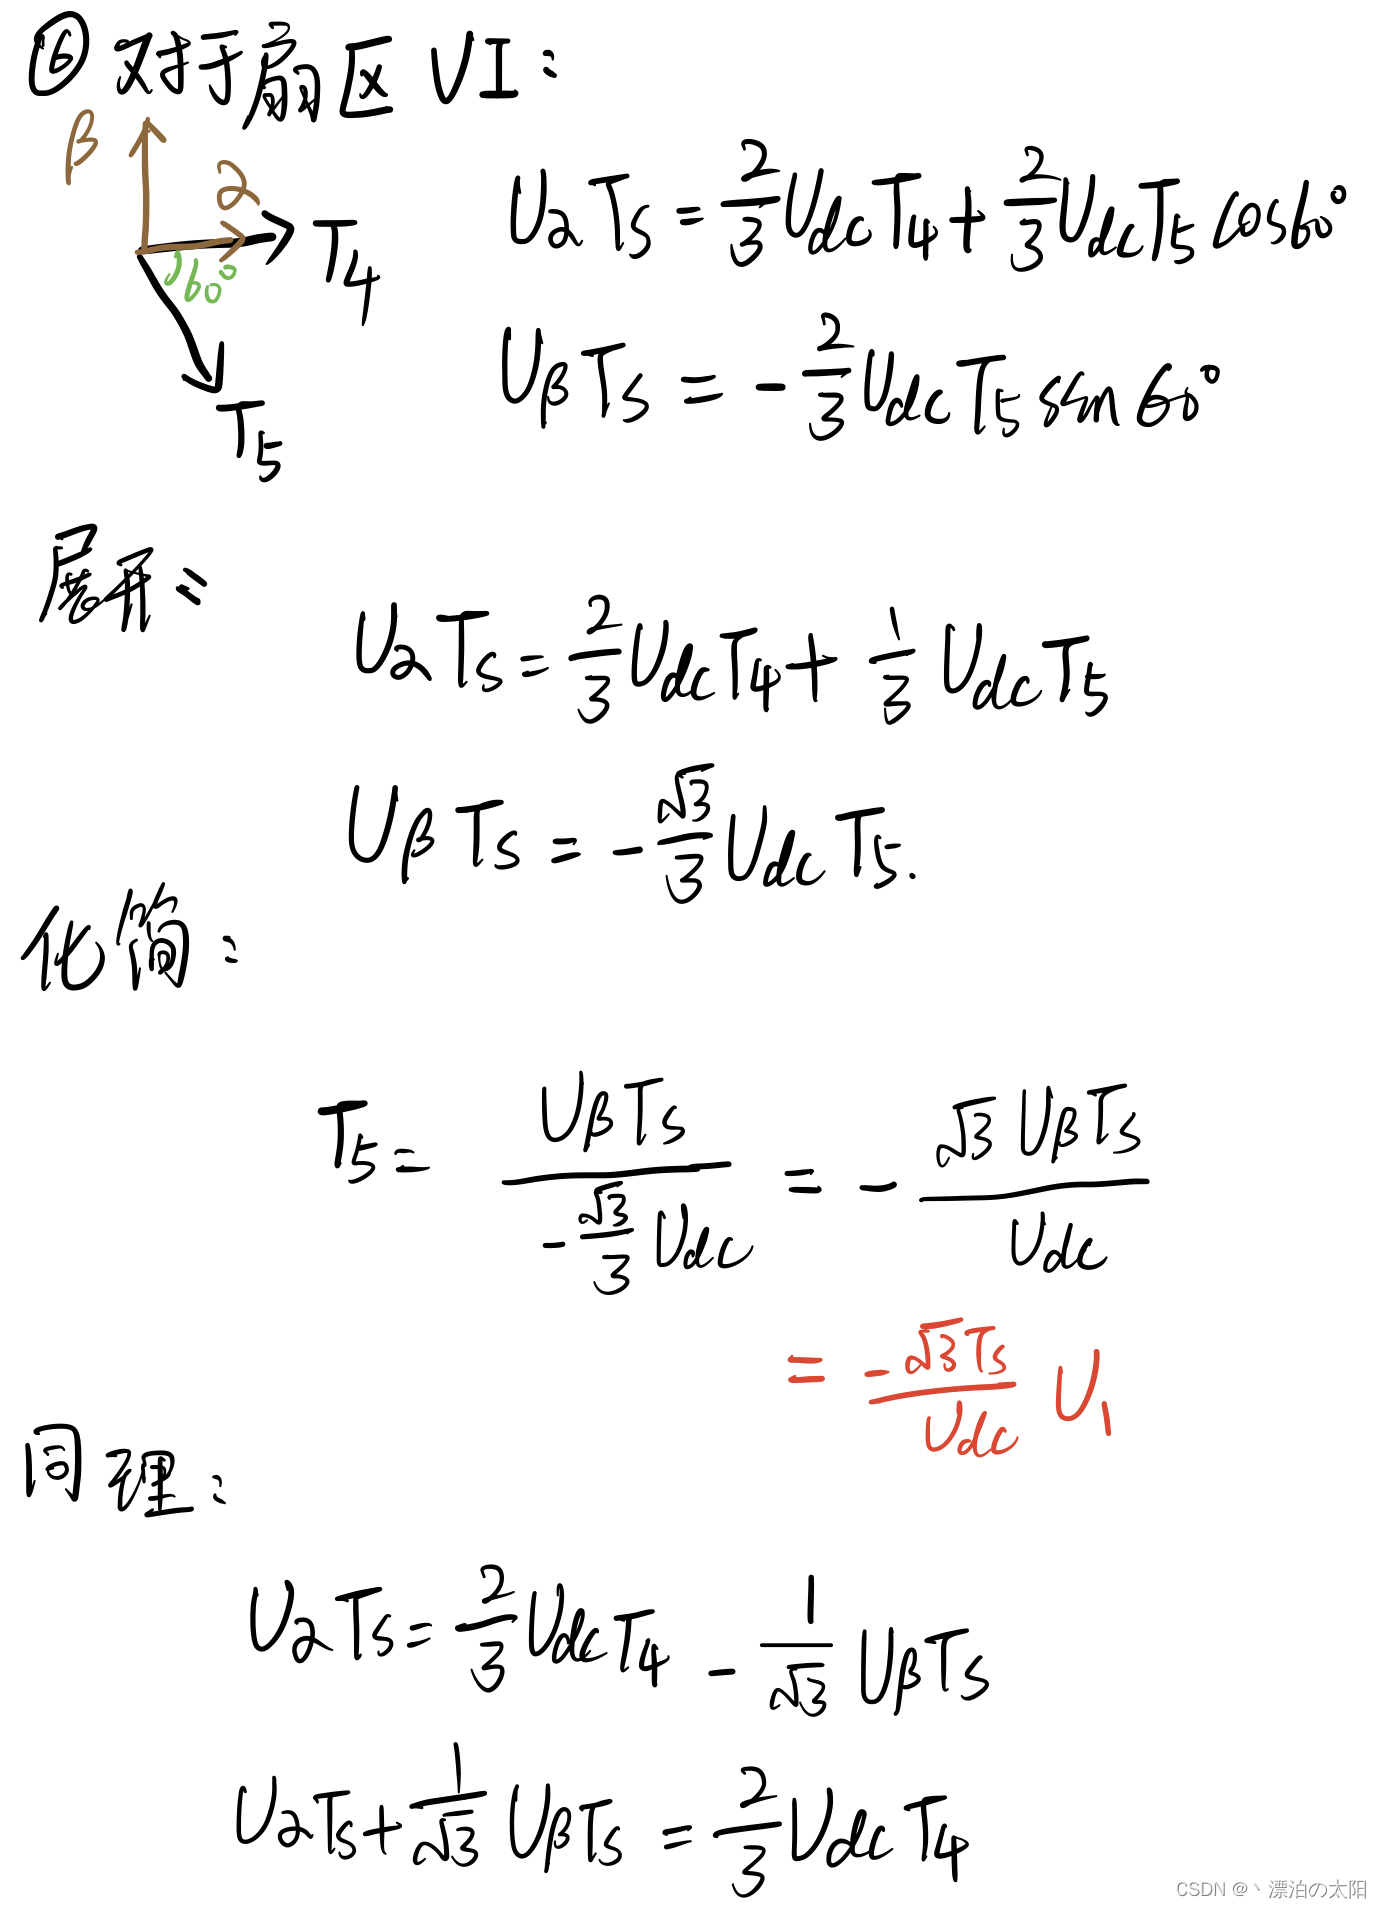 ⑥ 对于扇区 VI：
β
α
T₄
60°
T₅
UαTs = 2/3 UdcT₄ + 2/3 UdcT₅ cos60°
UβTs = - 2/3 UdcT₅ sin60°
展开：
UαTs = 2/3 UdcT₄ + 1/3 UdcT₅
UβTs = - √3/3 UdcT₅.
化简：
T₅ = UβTs / (- √3/3 Udc) = - √3 UβTs / Udc
= -√3Ts / Udc U₁
同理：
UαTs = 2/3 UdcT₄ - 1/√3 UβTs
UαTs + 1/√3 UβTs = 2/3 UdcT₄
CSDN @丶漂泊の太阳